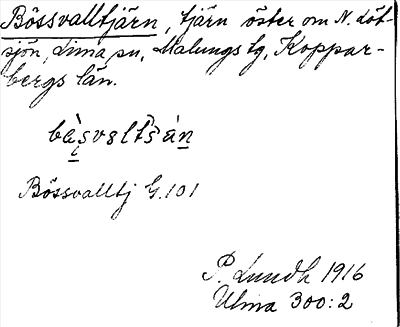 Bössvalltjärn, tjärn öster om N. Löt-
sjön, Lima sn, Malungs tg, Koppar-
bergs län.
Bössvalltj G.101
P. Lundh 1916
Ulma 300:2